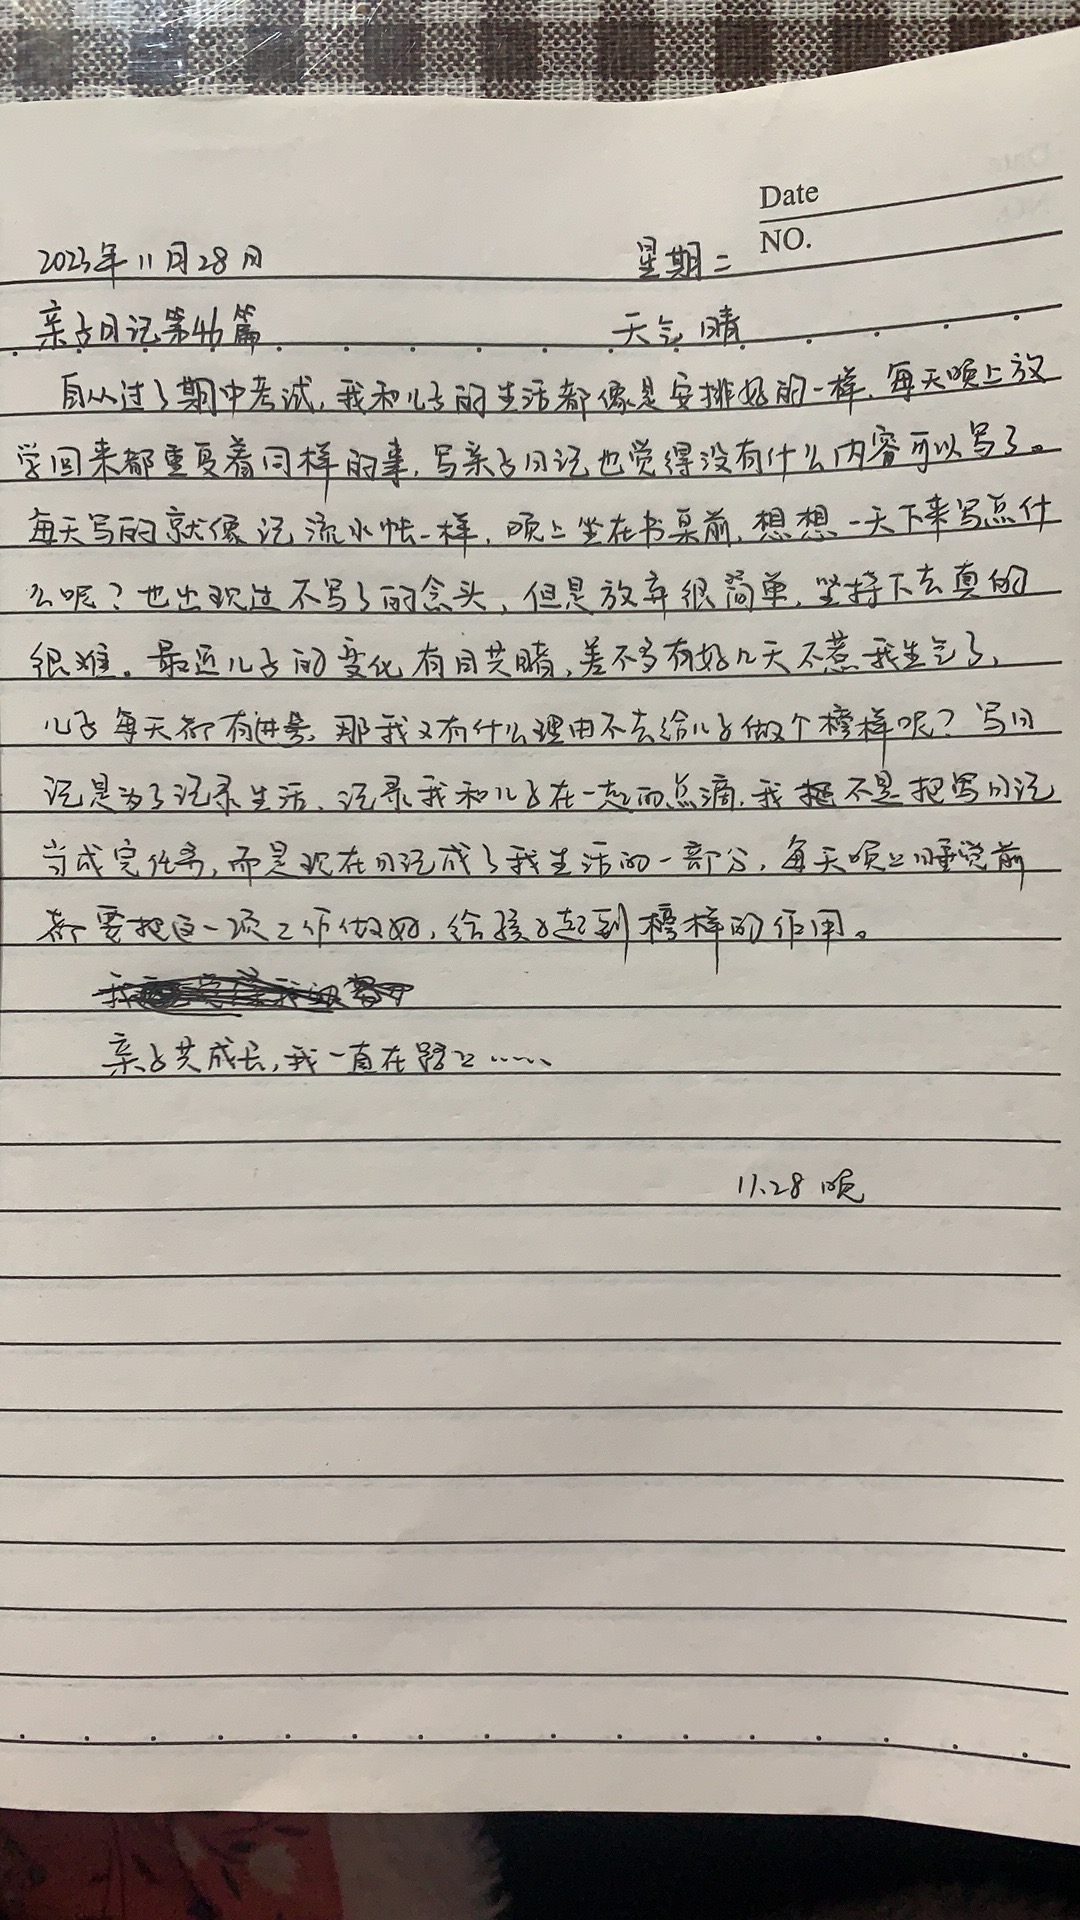 Date
NO.
2023年11月28日 星期二
亲子日记第46篇 天气 晴
自从过了期中考试,我和儿子的生活都像是安排好的一样,每天晚上放
学回来都重复着同样的事,写亲子日记也觉得没有什么内容可以写了。
每天写的就像记流水帐一样,晚上坐在书桌前,想想一天下来写点什
么呢?也出现过不写了的念头,但是放弃很简单,坚持下去真的
很难。最近儿子的变化有目共睹,差不多有好几天不惹我生气了,
儿子每天都有进步,那我又有什么理由不去给儿子做个榜样呢?写日
记是为了记录生活、记录我和儿子在一起的点滴,我不是把写日记
当成完任务,而是现在日记成了我生活的一部分,每天晚上睡觉前
都要把这一项工作做好,给孩子起到榜样的作用。
亲子共成长,我一直在路上……
11.28 晚